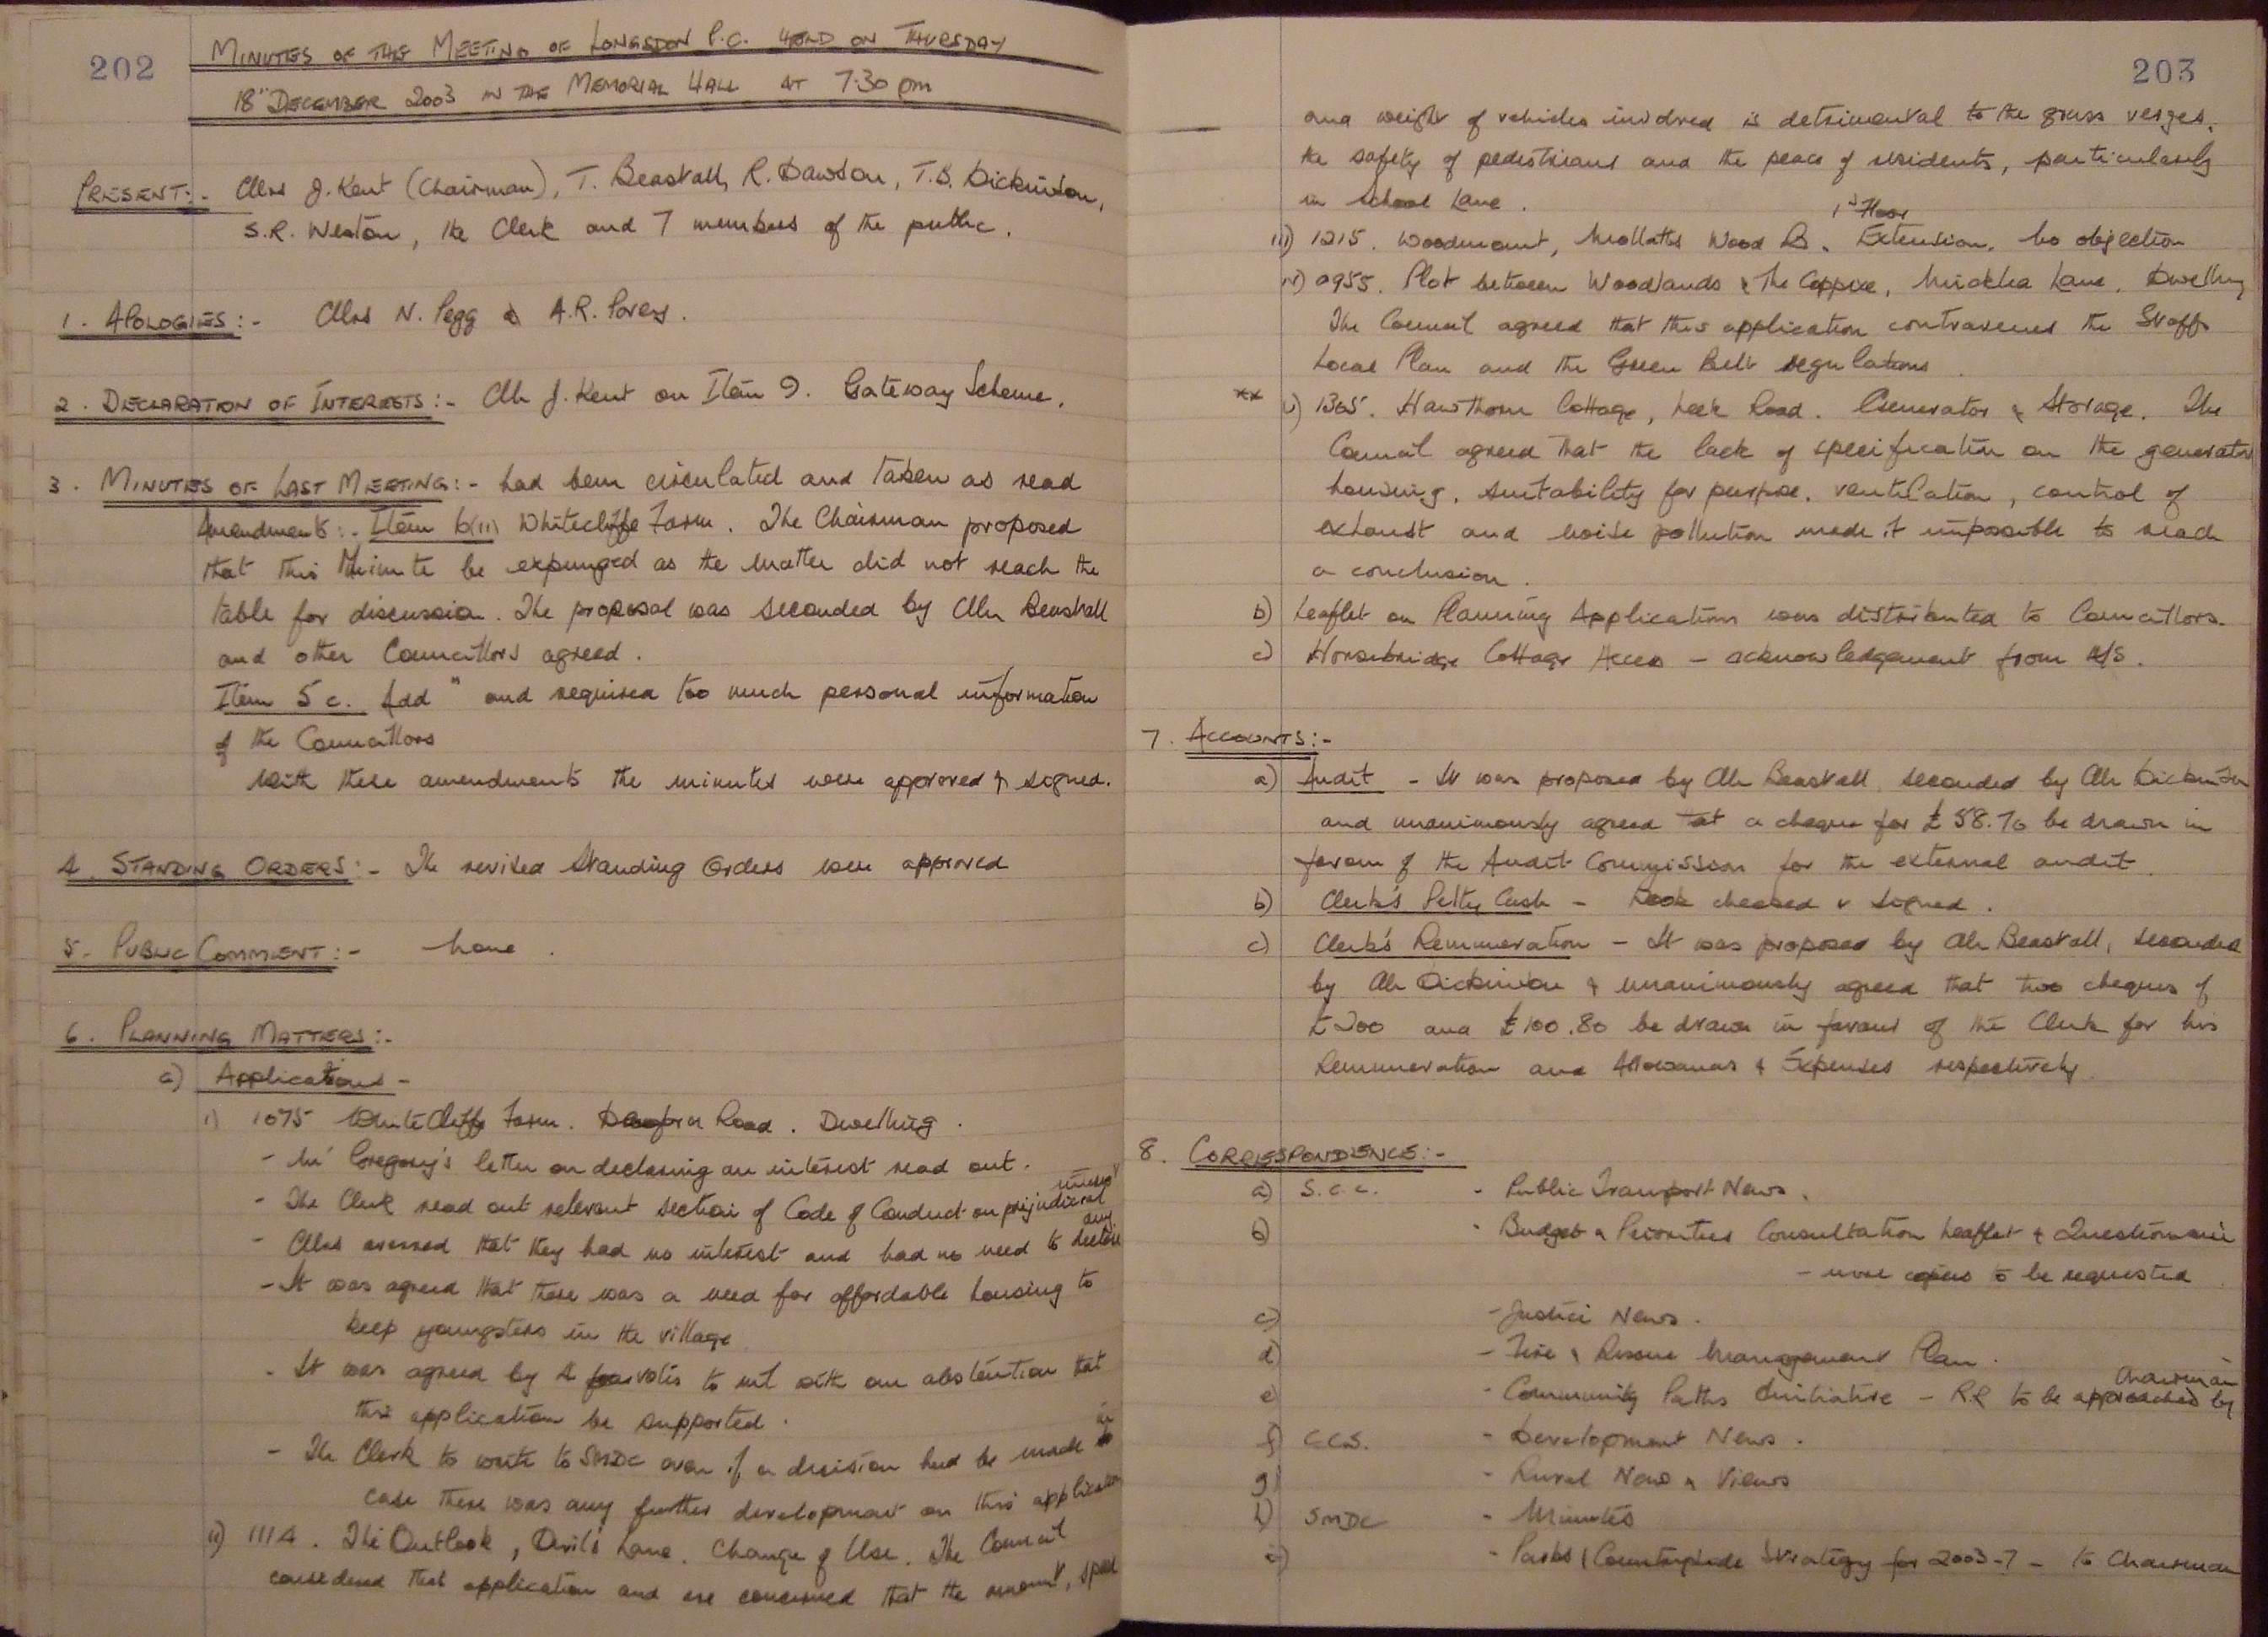 202
MINUTES OF THE MEETING OF LONGSDON P.C. HELD ON THURSDAY
18th DECEMBER 2003 IN THE MEMORIAL HALL AT 7.30 pm
PRESENT:- Cllrs J. Kent (Chairman), T. Beastall, R. Dawson, T.S. Dickinson,
S.R. Weston, the Clerk and 7 members of the public.
1. APOLOGIES:- Cllrs N. Pegg & A.R. Povey.
2. DECLARATION OF INTERESTS:- Cllr J. Kent on Item 9. Gateway Scheme.
3. MINUTES OF LAST MEETING:- had been circulated and taken as read
Amendments:- Item 6(ii) Whitecliffe Farm. The Chairman proposed
that this Minute be expunged as the matter did not reach the
table for discussion. The proposal was seconded by Cllr Beastall
and other Councillors agreed.
Item 5c. Add " and required too much personal information
of the Councillors
With these amendments the minutes were approved & signed.
4. STANDING ORDERS:- The revised Standing Orders were approved
5. PUBLIC COMMENT:- None.
6. PLANNING MATTERS:-
a) Applications -
i) 1075 Whitecliffe Farm. Road. Dwelling.
- Mr Gregory's letter on declaring an interest read out.
- The Clerk read out relevant section of Code of Conduct on prejudicial interest
- Cllrs averred that they had no interest and had no need to declare any
- It was agreed that there was a need for affordable housing to
keep youngsters in the village
- It was agreed by 4 votes to nil with one abstention that
this application be supported.
- The Clerk to write to SMDC even if a decision had be made in
case there was any further development on this application
ii) 1114. The Outlook, Devil's Lane. Change of Use. The Council
considered that application and are concerned that the amount, speed
203
and weight of vehicles involved is detrimental to the grass verges,
the safety of pedestrians and the peace of residents, particularly
in School Lane.
iii) 1215. Woodmount, Mollatts Wood Rd. 1st Floor Extension. No objection
iv) 0955. Plot between Woodlands & The Coppice, Micklea Lane. Dwelling
The Council agreed that this application contravenes the Staffs
Local Plan and the Green Belt regulations.
** v) 1305. Hawthorn Cottage, Leek Road. Generator & Storage. The
Council agreed that the lack of specification on the generator
housing, suitability for purpose, ventilation, control of
exhaust and noise pollution made it impossible to reach
a conclusion.
b) Leaflet on Planning Applications was distributed to Councillors.
c) Horsebridge Cottage Access - acknowledgement from
7. ACCOUNTS:-
a) Audit - It was proposed by Cllr Beastall, seconded by Cllr Dickinson
and unanimously agreed tat a cheque for £58.76 be drawn in
favour of the Audit Commission for the external audit.
b) Clerk's Petty Cash - Book checked & signed.
c) Clerk's Remuneration - It was proposed by Cllr Beastall, seconded
by Cllr Dickinson & unanimously agreed that two cheques of
£200 and £100.80 be drawn in favour of the Clerk for his
Remuneration and Allowances & Expenses respectively.
8. CORRESPONDENCE:-
a) S.C.C. - Public Transport News.
b) - Budget & Priorities Consultation Leaflet & Questionnaire
- more copies to be requested.
c) - Justice News.
d) - Fire & Rescue Management Plan.
e) - Community Paths Initiative - R.R. to be approached by Chairman
f) C.C.S. - Development News.
g) - Rural News & Views
h) SMDC - Minutes
i) - Parks & Countryside Strategy for 2003-7 - to Chairman